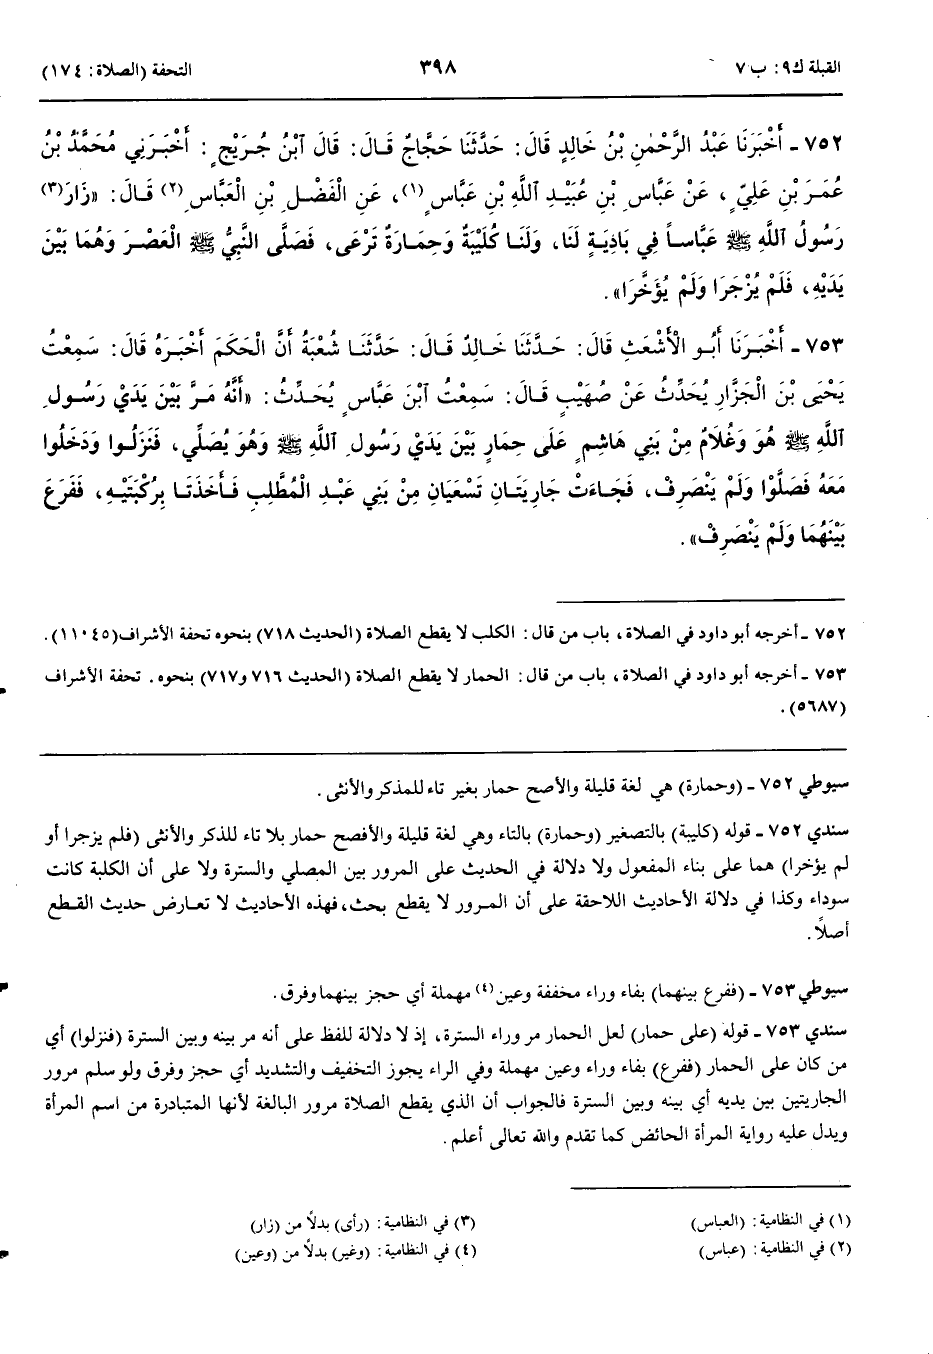 القبلة ك٩: ب ٧
٣٩٨
التحفة (الصلاة: ١٧٤)
٧٥٢ - أَخْبَرَنَا عَبْدُ الرَّحْمٰنِ بْنُ خَالِدٍ قَالَ: حَدَّثَنَا حَجَّاجٌ قَالَ: قَالَ ٱبْنُ جُرَيْجٍ: أَخْبَرَنِي مُحَمَّدُ بْنُ
عُمَرَ بْنِ عَلِيٍّ، عَنْ عَبَّاسِ بْنِ عُبَيْدِ ٱللَّهِ بْنِ عَبَّاسٍ(١)، عَنِ الْفَضْلِ بْنِ الْعَبَّاسِ(٢) قَالَ: «زَارَ(٣)
رَسُولُ ٱللَّهِ ﷺ عَبَّاساً فِي بَادِيَةٍ لَنَا، وَلَنَا كُلَيْبَةٌ وَحِمَارَةٌ تَرْعَى، فَصَلَّى النَّبِيُّ ﷺ الْعَصْرَ وَهُمَا بَيْنَ
يَدَيْهِ، فَلَمْ يُزْجَرَا وَلَمْ يُؤَخَّرَا».
٧٥٣ - أَخْبَرَنَا أَبُو الْأَشْعَثِ قَالَ: حَدَّثَنَا خَالِدٌ قَالَ: حَدَّثَنَا شُعْبَةُ أَنَّ الْحَكَمَ أَخْبَرَهُ قَالَ: سَمِعْتُ
يَحْيَى بْنَ الْجَزَّارِ يُحَدِّثُ عَنْ صُهَيْبٍ قَالَ: سَمِعْتُ ٱبْنَ عَبَّاسٍ يُحَدِّثُ: «أَنَّهُ مَرَّ بَيْنَ يَدَيْ رَسُولِ
ٱللَّهِ ﷺ هُوَ وَغُلَامٌ مِنْ بَنِي هَاشِمٍ عَلَى حِمَارٍ بَيْنَ يَدَيْ رَسُولِ ٱللَّهِ ﷺ وَهُوَ يُصَلِّي، فَنَزَلُوا وَدَخَلُوا
مَعَهُ فَصَلَّوْا وَلَمْ يَنْصَرِفْ، فَجَاءَتْ جَارِيَتَانِ تَسْعَيَانِ مِنْ بَنِي عَبْدِ الْمُطَّلِبِ فَأَخَذَتَا بِرُكْبَتَيْهِ، فَفَرَعَ
بَيْنَهُمَا وَلَمْ يَنْصَرِفْ».
٧٥٢ - أخرجه أبو داود في الصلاة، باب من قال: الكلب لا يقطع الصلاة (الحديث ٧١٨) بنحوه تحفة الأشراف(١١٠٤٥).
٧٥٣ - أخرجه أبو داود في الصلاة، باب من قال: الحمار لا يقطع الصلاة (الحديث ٧١٦ و٧١٧) بنحوه. تحفة الأشراف
(٥٦٨٧).
سيوطي ٧٥٢ - (وحمارة) هي لغة قليلة والأصح حمار بغير تاء للمذكر والأنثى.
سندي ٧٥٢ - قوله (كليبة) بالتصغير (وحمارة) بالتاء وهي لغة قليلة والأفصح حمار بلا تاء للذكر والأنثى (فلم يزجرا أو
لم يؤخرا) هما على بناء المفعول ولا دلالة في الحديث على المرور بين المصلي والسترة ولا على أن الكلبة كانت
سوداء وكذا في دلالة الأحاديث اللاحقة على أن المرور لا يقطع بحث، فهذه الأحاديث لا تعارض حديث القطع
أصلاً.
سيوطي ٧٥٣ - (ففرع بينهما) بفاء وراء مخففة وعين(٤) مهملة أي حجز بينهما وفرق.
سندي ٧٥٣ - قوله (على حمار) لعل الحمار مر وراء السترة، إذ لا دلالة للفظ على أنه مر بينه وبين السترة (فنزلوا) أي
من كان على الحمار (ففرع) بفاء وراء وعين مهملة وفي الراء يجوز التخفيف والتشديد أي حجز وفرق ولو سلم مرور
الجاريتين بين يديه أي بينه وبين السترة فالجواب أن الذي يقطع الصلاة مرور البالغة لأنها المتبادرة من اسم المرأة
ويدل عليه رواية المرأة الحائض كما تقدم والله تعالى أعلم.
(١) في النظامية: (العباس)
(٢) في النظامية: (عباس)
(٣) في النظامية: (رأى) بدلاً من (زار)
(٤) في النظامية: (وغير) بدلاً من (وعين)